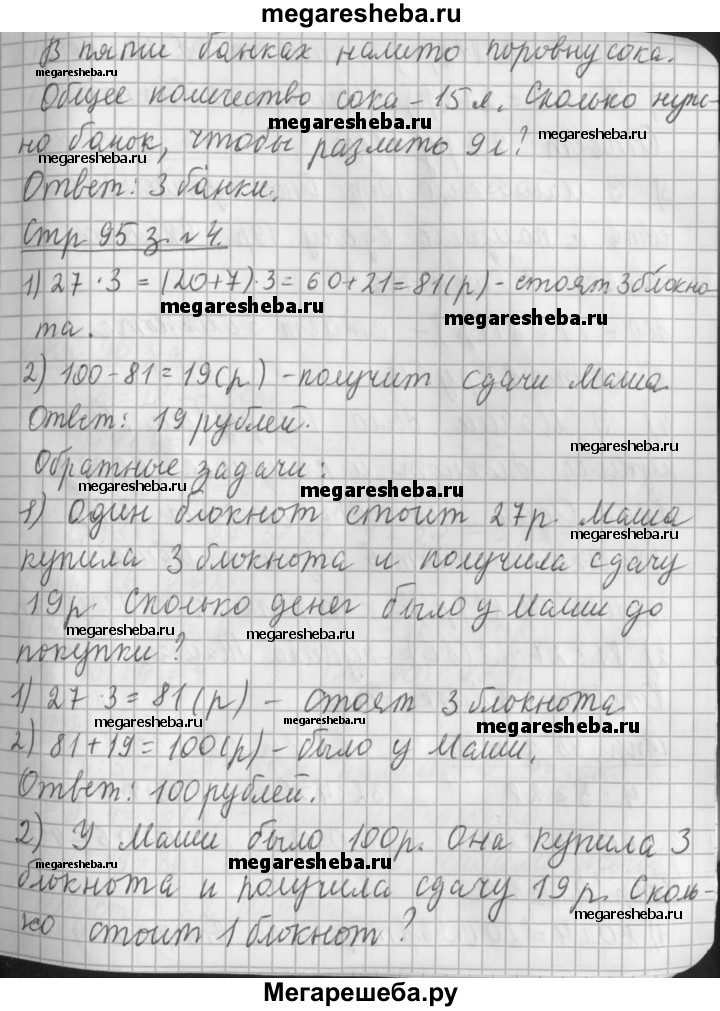 megaresheba.ru
В пяти банках налито поровну сока.
megaresheba.ru
Общее количество сока - 15 л. Сколько нуж-
megaresheba.ru
megaresheba.ru
но банок, чтобы разлить 9 л?
megaresheba.ru
Ответ: 3 банки.
Стр 95 з. №4.
1) 27 · 3 = (20+7)·3 = 60+21=81(р) - стоят 3 блокно-
megaresheba.ru
megaresheba.ru
та.
2) 100-81=19(р.) - получит сдачи Маша
Ответ: 19 рублей.
megaresheba.ru
Обратные задачи:
megaresheba.ru
megaresheba.ru
1) Один блокнот стоит 27 р. Маша
megaresheba.ru
купила 3 блокнота и получила сдачу
19 р. Сколько денег было у Маши до
megaresheba.ru
megaresheba.ru
покупки?
1) 27 · 3 = 81(р) - стоят 3 блокнота
megaresheba.ru
megaresheba.ru
megaresheba.ru
2) 81+19=100(р) - было у Маши.
Ответ: 100 рублей.
2) У Маши было 100 р. Она купила 3
megaresheba.ru
megaresheba.ru
блокнота и получила сдачу 19 р. Сколь-
megaresheba.ru
ко стоит 1 блокнот?
Мегарешеба.ру